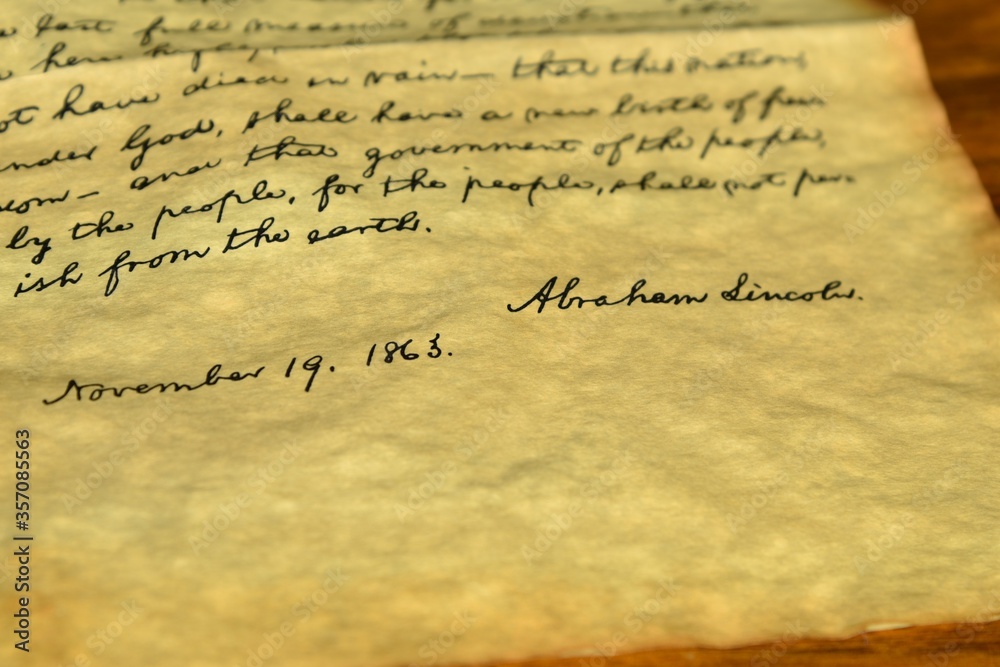 last full measure of devotion
here highly
ot have died in vain — that this nation,
nder God, shall have a new birth of free
dom — and that government of the people,
by the people, for the people, shall not per-
ish from the earth.
Abraham Lincoln.
November 19. 1863.
Adobe Stock | #357085563